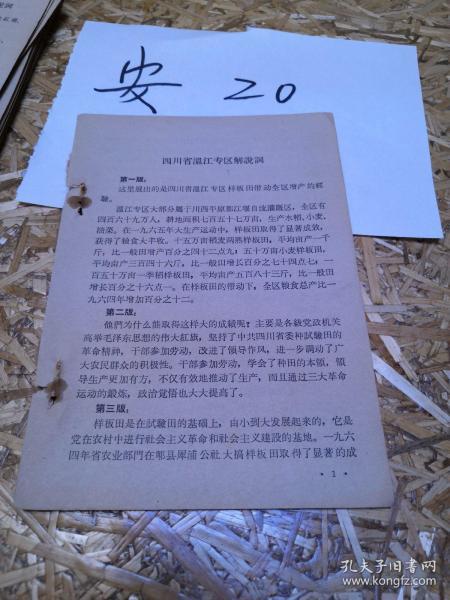 安 20
四川省溫江专区解說詞
第一版:
这里展出的是四川省溫江专区样板田带动全区增产的經
驗。
溫江专区大部分属于川西平原都江堰自流灌溉区,全区有
四百六十九万人,耕地面积七百五十七万亩,生产水稻、小麦、
油菜。在一九六五年大生产运动中,样板田取得了显著成效,
获得了粮食大丰收。十五万亩稻麦两熟样板田,平均亩产一千
斤,比一般田增产百分之四十二点九;五十万亩小麦样板田,
平均亩产三百四十六斤,比一般田增长百分之七十四点七;一
百五十万亩一季稻样板田,平均亩产五百八十三斤,比一般田
增长百分之十六点一。在样板田的带动下,全区粮食总产比一
九六四年增加百分之十二。
第二版:
他們为什么能取得这样大的成績呢?主要是各級党政机关
高举毛泽东思想的伟大紅旗,坚持了中共四川省委种試驗田的
革命精神,干部参加劳动,改进了领导作风,进一步調动了广
大农民群众的积极性。干部参加劳动,学会了种田的本領,領
导生产更加有方,不仅有效地推动了生产,而且通过三大革命
运动的鍛炼,政治覚悟也大大提高了。
第三版:
样板田是在試驗田的基础上,由小到大发展起来的,它是
党在农村中进行社会主义革命和社会主义建設的基地。一九六
四年省农业部門在郫县犀浦公社大搞样板田取得了显著的成
· 1 ·
孔夫子旧书网
www.kongfz.com